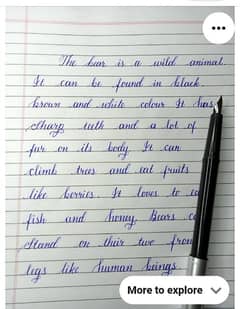 The bear is a wild animal.
It can be found in black
brown and white colour It has
sharp teeth and a lot of
fur on its body. It can
climb trees and eat fruits
like berries. It loves to
fish and honey. Bears
Stand on their two
legs like human beings
More to explore